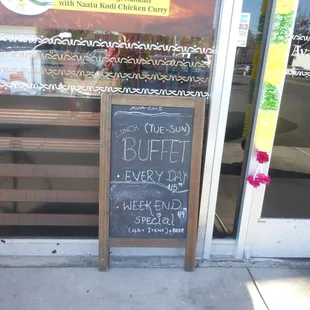 with Naatu Kodi Chicken Curry
LUNCH (TUE-SUN)
BUFFET
• EVERY DAY
• WEEKEND
SPECIAL
(40+ ITEMS)+BEER